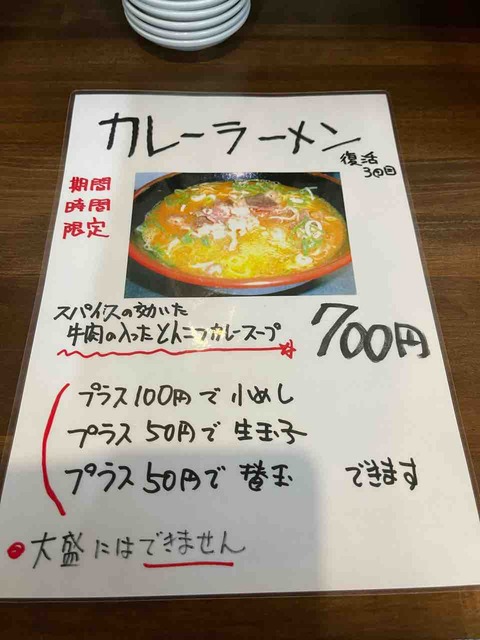 カレーラーメン
復活
3回目
期間
時間
限定
スパイスの効いた
牛肉の入ったとんこつカレースープ
700円
プラス100円で 小めし
プラス50円で 生玉子
プラス50円で 替玉 できます
大盛にはできません